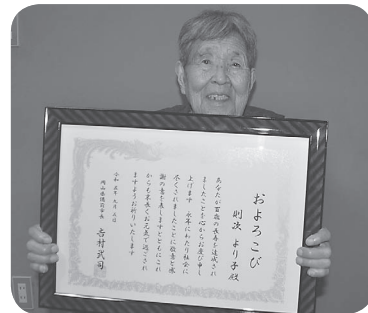 およろこび
則次 より子殿
あなたが百歳の長寿を達成され
ましたことを心からお慶び申し
上げます 永年にわたり社会に
尽くされましたことに敬意と感
謝の意を表しますとともにこれ
からも末長くお元気で過ごされ
ますようお祈りいたします
令和五年九月五日
岡山県備前市長
吉村武司